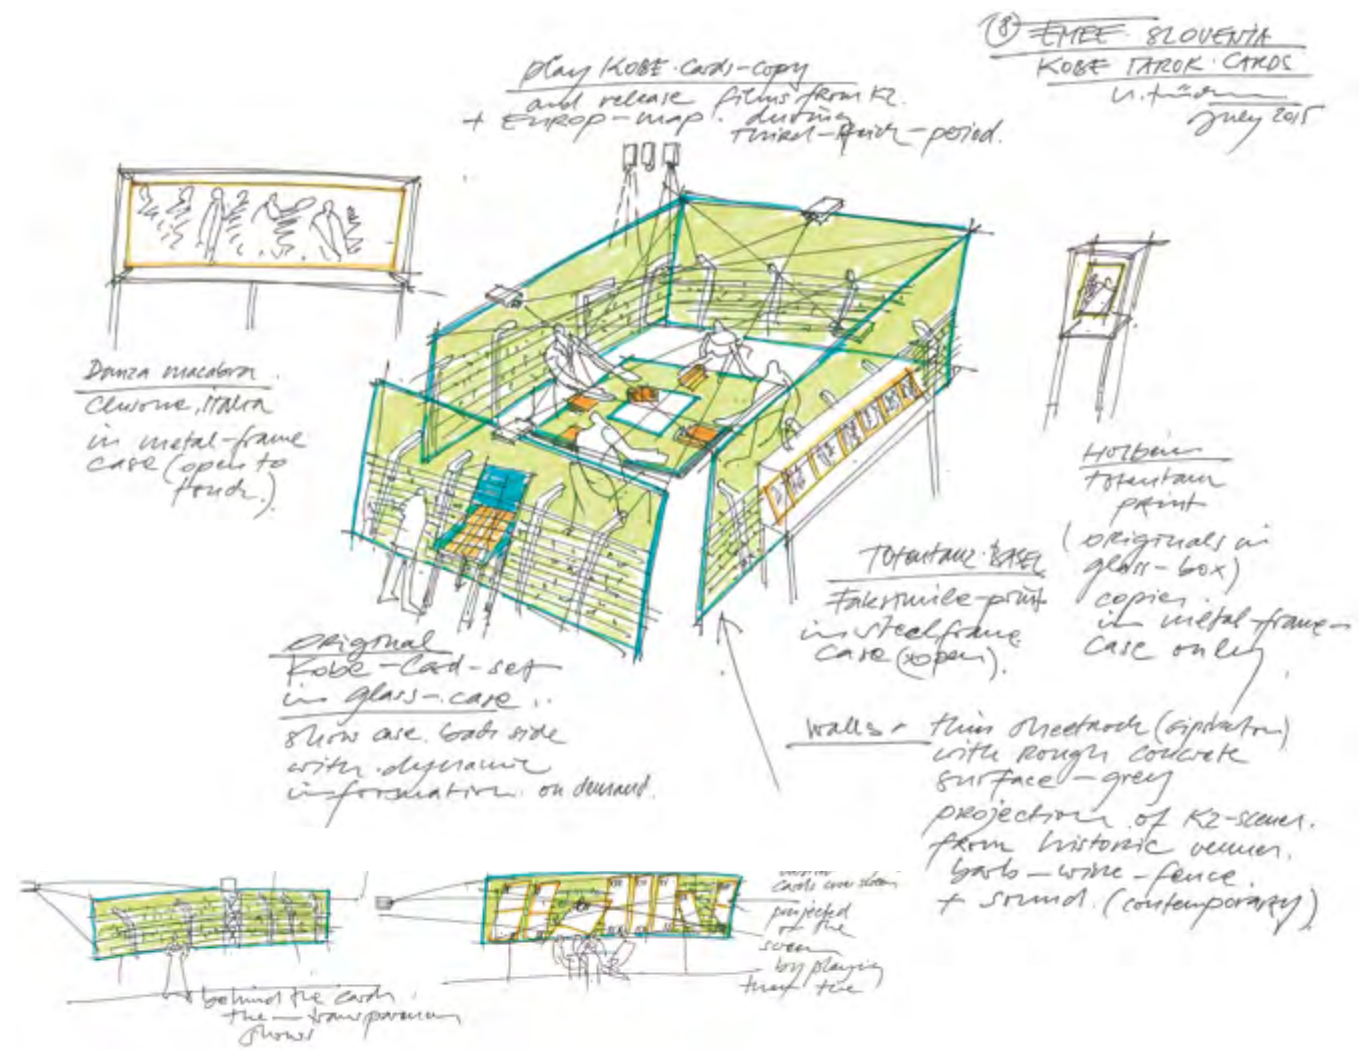 18 EMEE SLOVENIA
KOBE TAROK CARDS
July 2015
play KOBE cards-copy
and release films from KZ.
+ EUROP-map during
Third-Reich-period.
Danza macabra
Clusone, Italia
in metal-frame
case (open to
touch.)
Holbein
totentanz
print
(originals in
glass-box)
copies
in metal-frame-
case only
TOTENTANZ BASEL
Faksimile-print
in steel frame
case (open).
original
Kobe-Card-set
in glass-case
show case back side
with dynamic
information on demand.
walls
thin sheetrock
with rough concrete
surface-grey
projection of KZ-scenes.
from historic venues.
barb-wire-fence.
+ sound. (contemporary)
behind the cards
the
shows
cards
projected
of the
screen
by playing
the